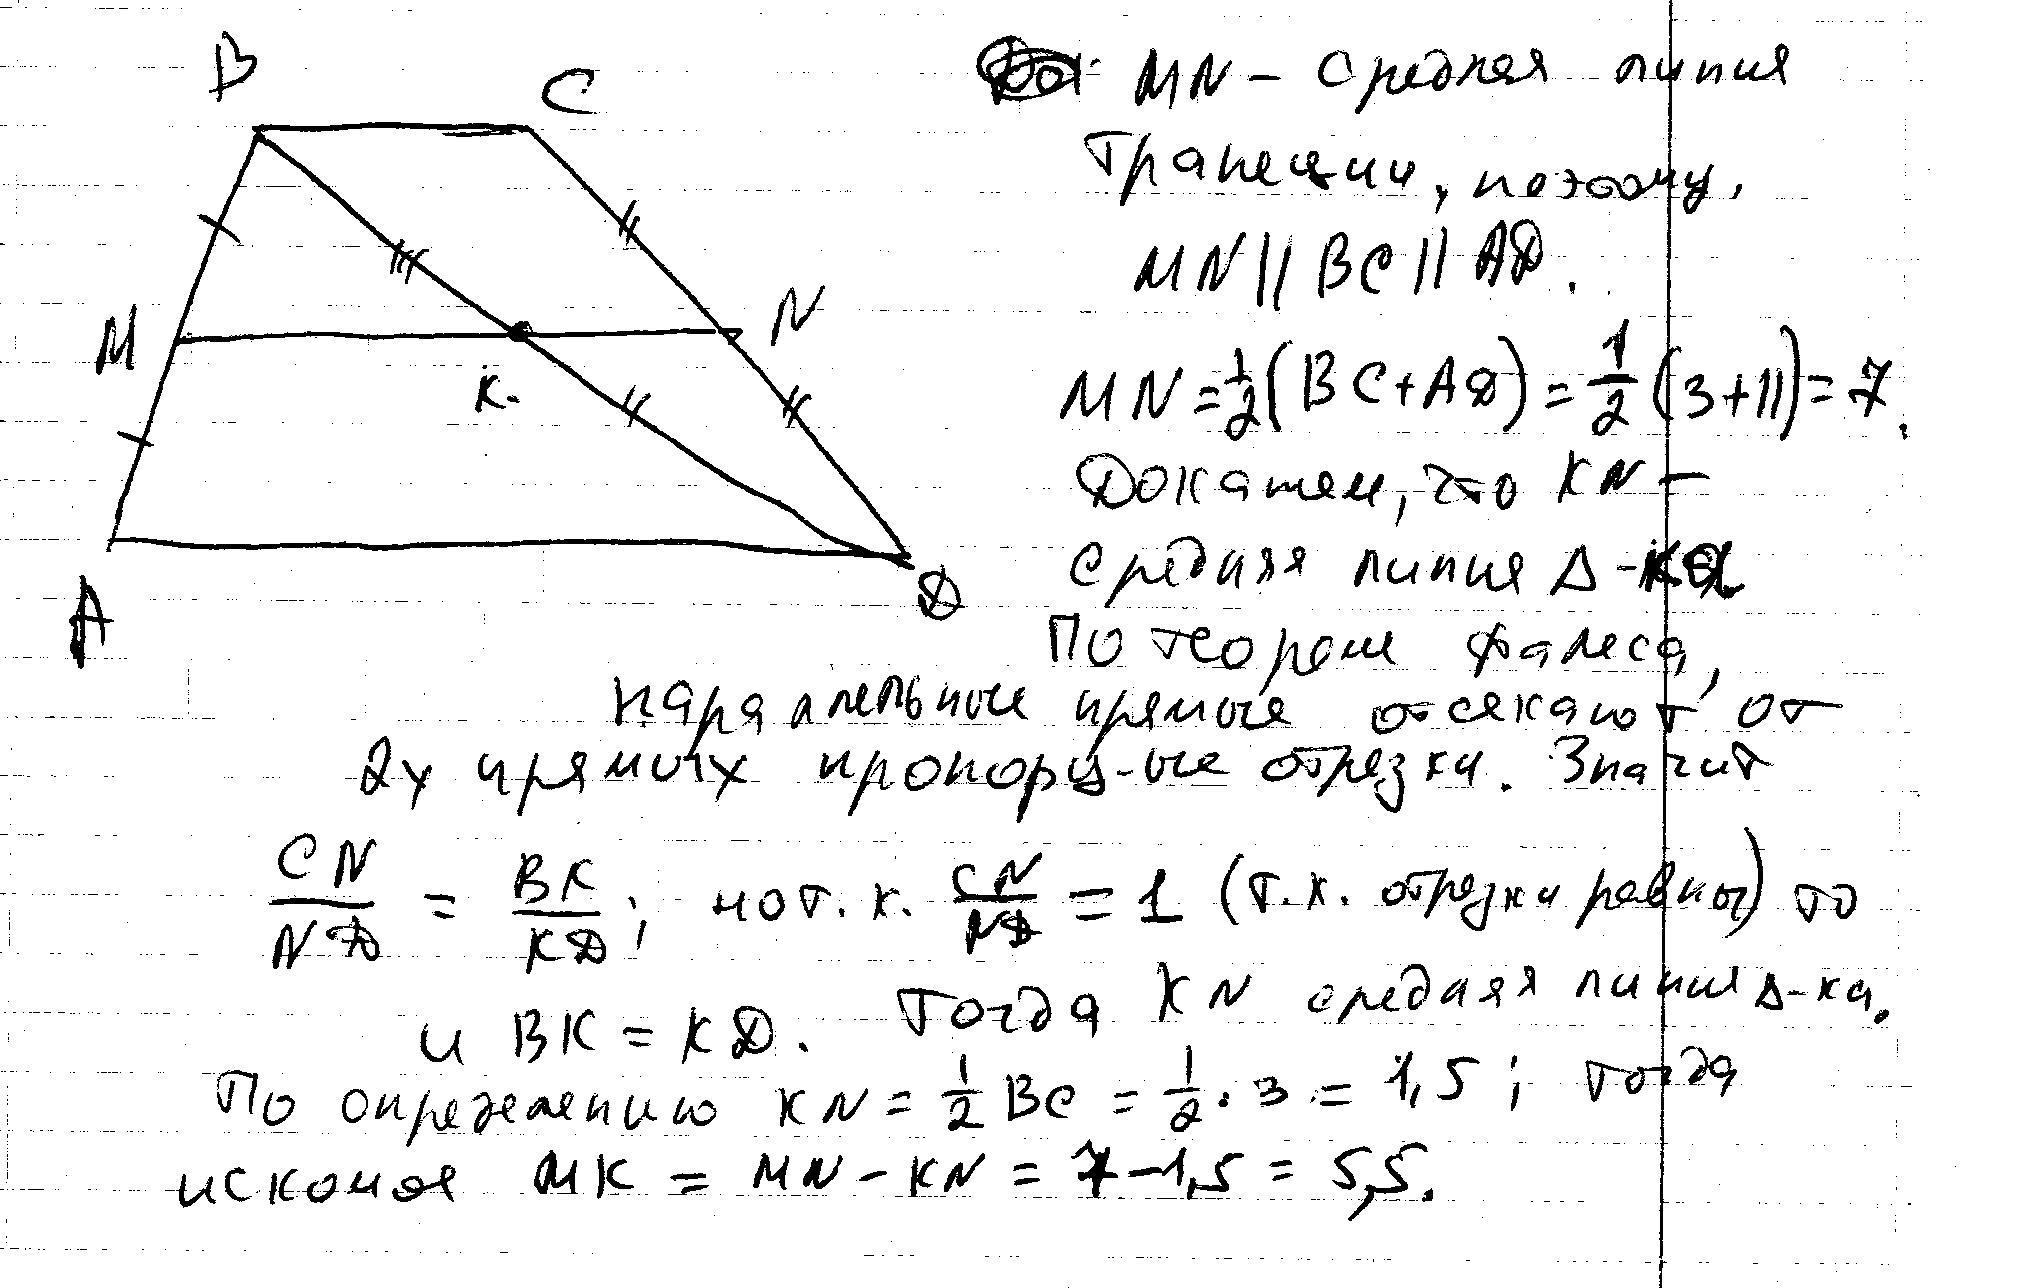 B
C
M
N
K.
A
D
MN – средняя линия
трапеции, поэтому,
MN || BC || AD.
MN = 1/2 (BC + AD) = 1/2 (3 + 11) = 7.
Докажем, что KN –
средняя линия Δ-ка
По теореме Фалеса,
параллельные прямые отсекают от
2х прямых пропорц-ые отрезки. Значит
CN/ND = BK/KD; но т. к. CN/ND = 1 (т.к. отрезки равны) то
и BK = KD. Тогда KN средняя линия Δ-ка.
По определению KN = 1/2 BC = 1/2 · 3 = 1,5; тогда
искомая MK = MN – KN = 7 – 1,5 = 5,5.